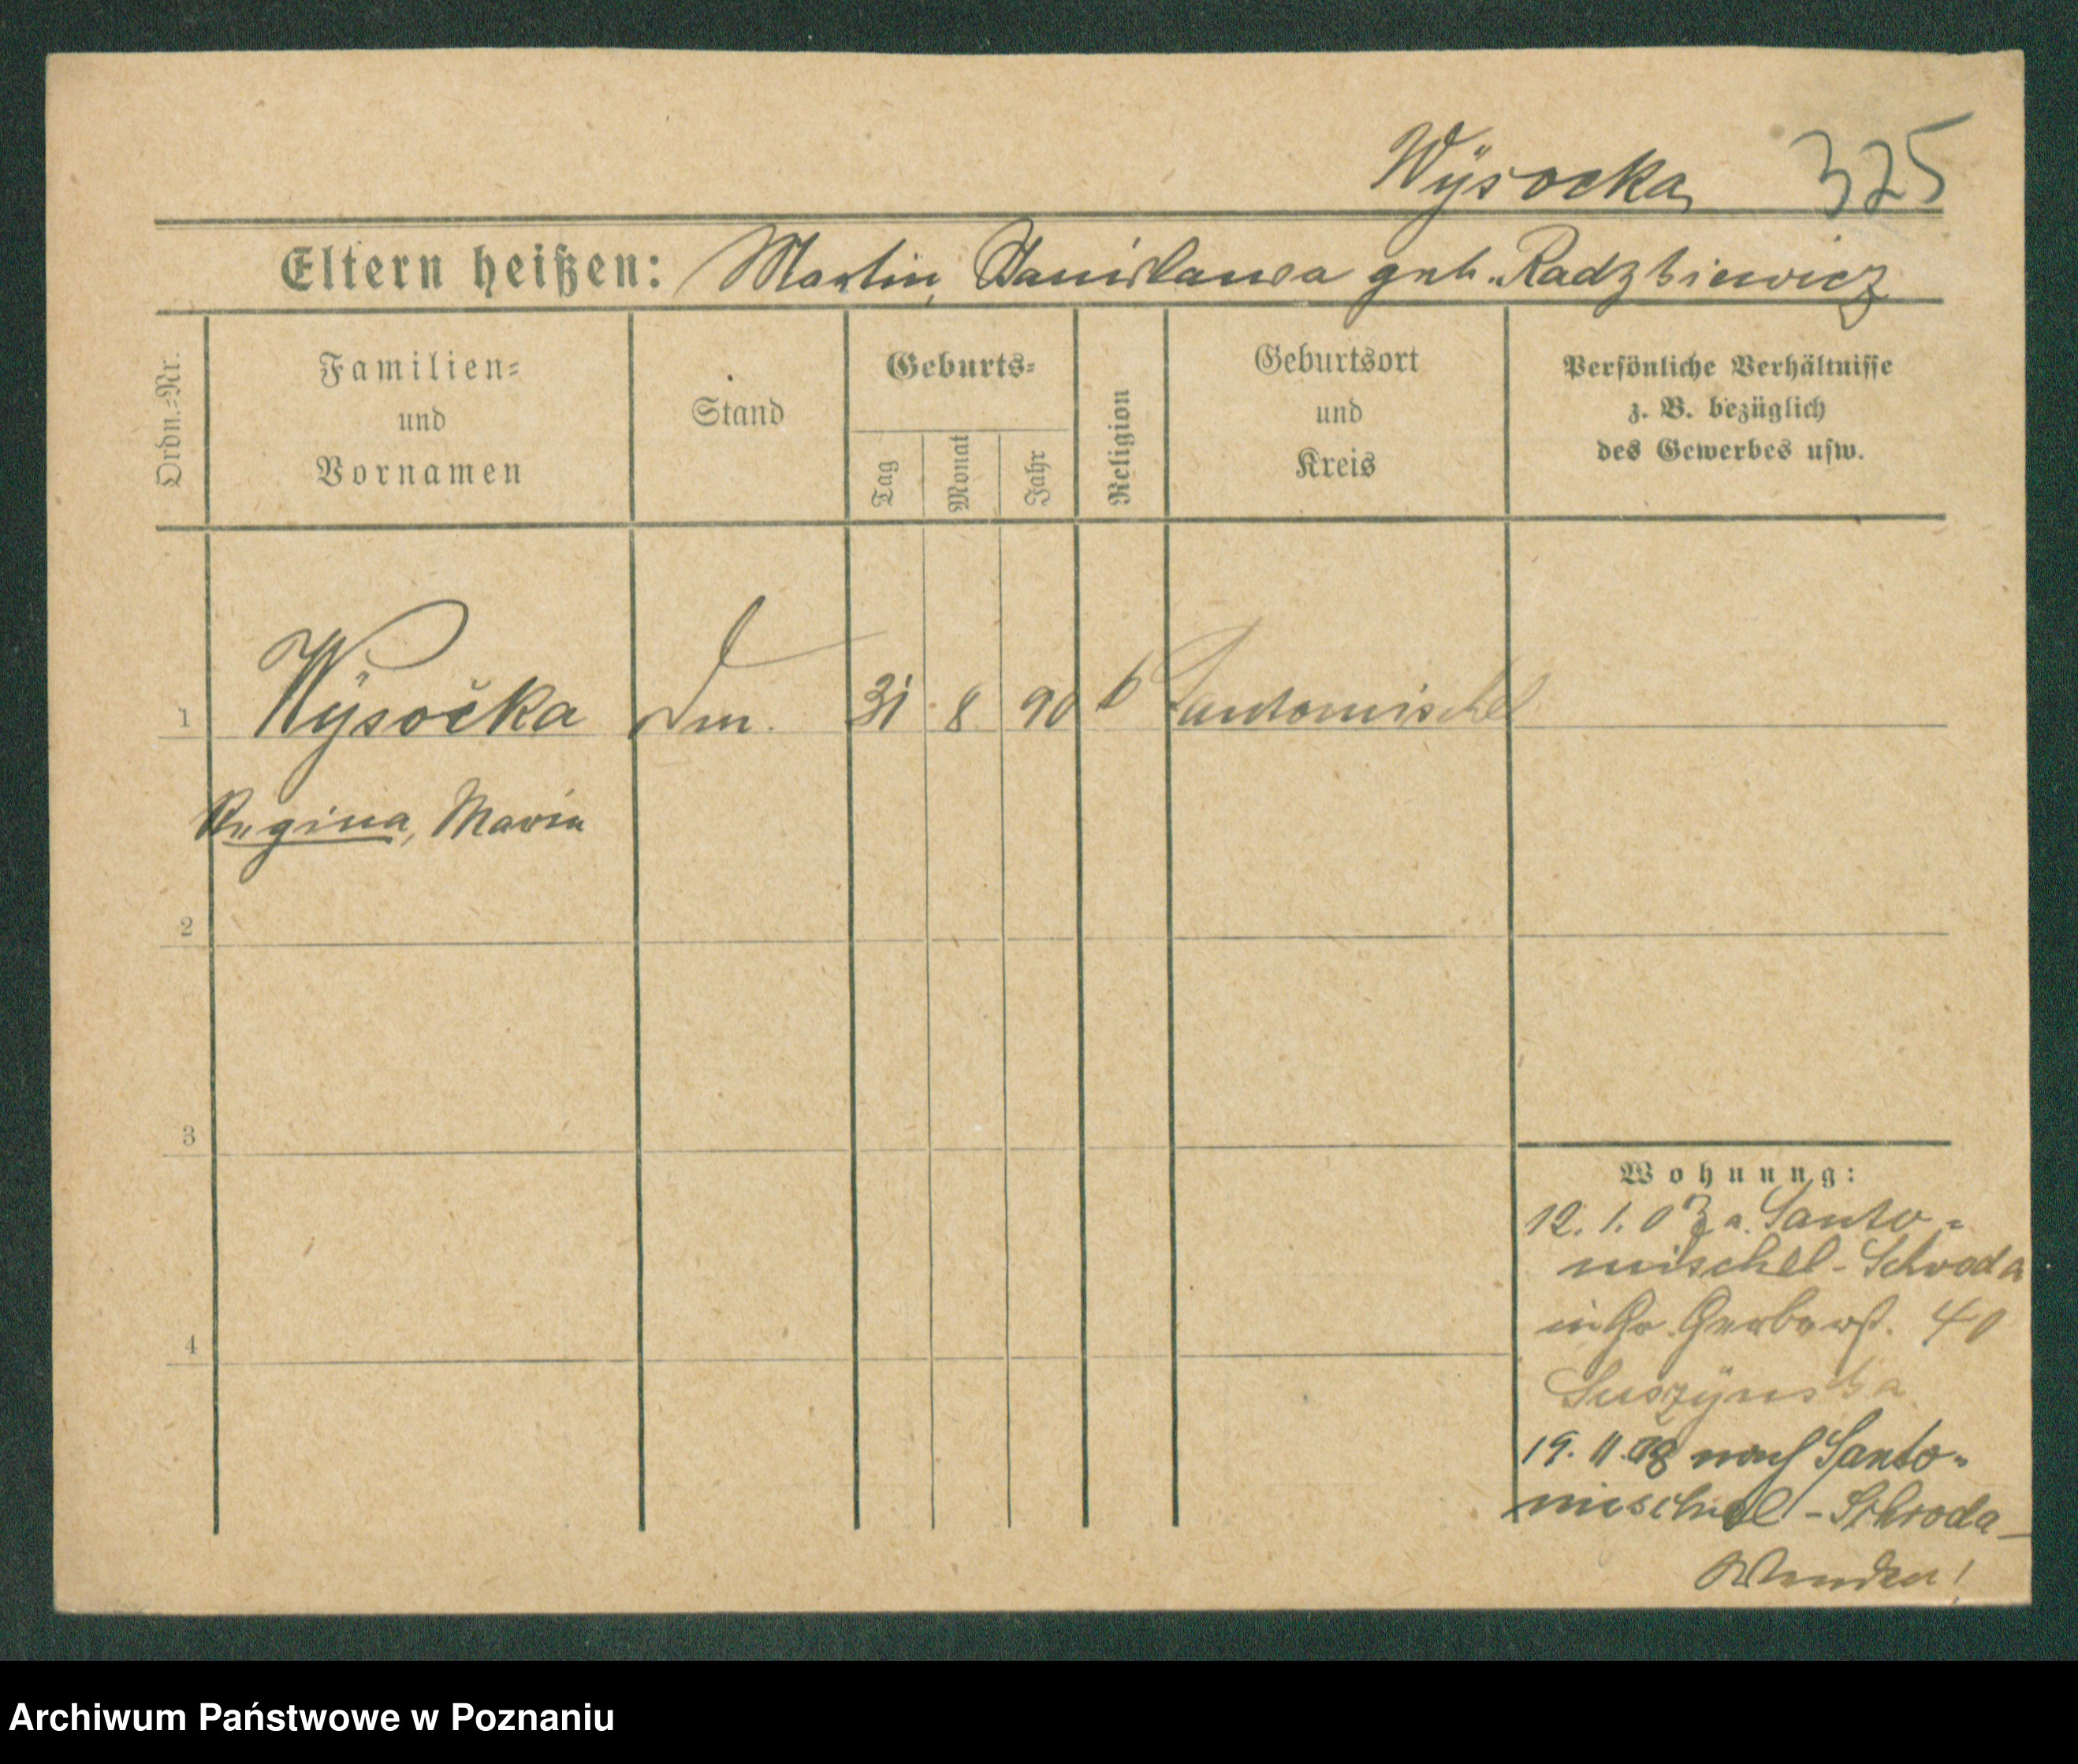 Wÿsocka 325
Eltern heißen: Martin, Stanislawa geb. Radzkiewicz
Ordn.=Nr.
Familien=
und
Vornamen
Stand
Geburts=
Tag
Monat
Jahr
Religion
Geburtsort
und
Kreis
Persönliche Verhältnisse
z. B. bezüglich
des Gewerbes usw.
1 Wÿsocka 31 8 90 Santomischel
Regina, Maria
2
3
4
Wohnung:
12. 1. 07 a. Santo=
mischel - Schroda
in Gr. Gerberst. 40
Suszÿnska
19. 11. 08 nach Santo=
mischel - Schroda
Wenden!
Archiwum Państwowe w Poznaniu